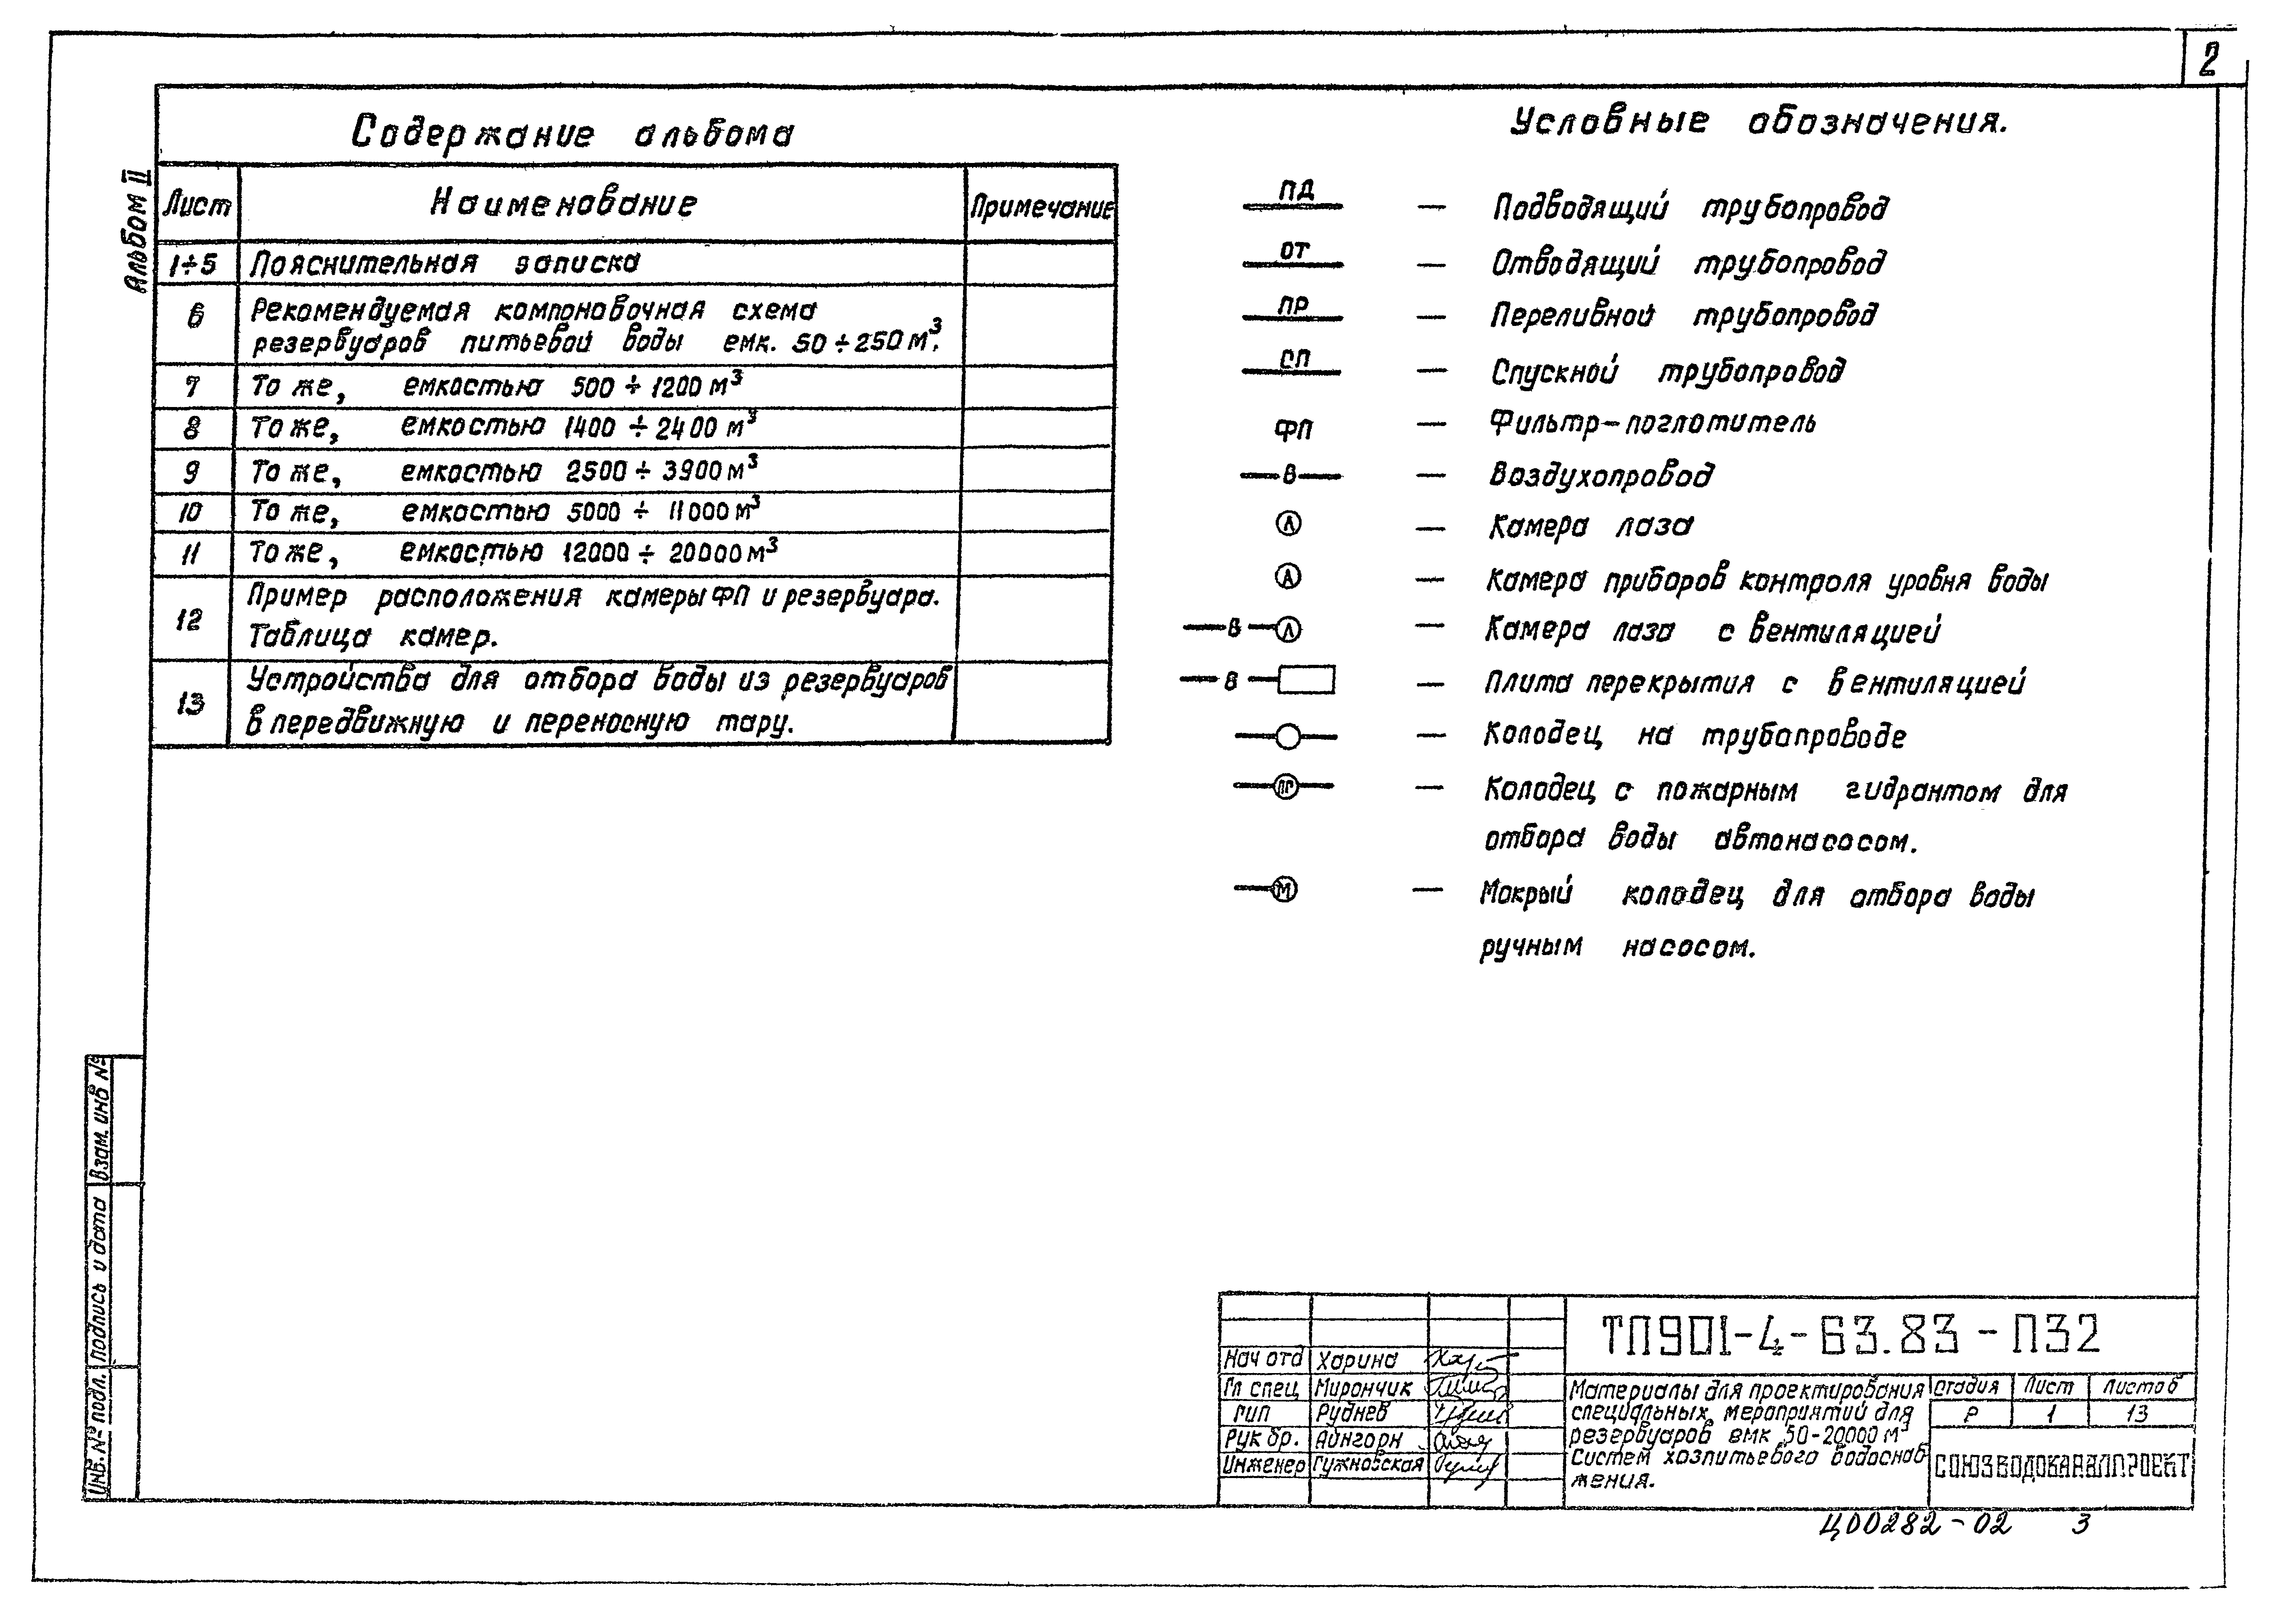 2
Альбом II
Содержание альбома
Лист Наименование Примечание
1÷5 Пояснительная записка
6 Рекомендуемая компоновочная схема
резервуаров питьевой воды емк. 50÷250 м³.
7 То же, емкостью 500 ÷ 1200 м³
8 То же, емкостью 1400 ÷ 2400 м³
9 То же, емкостью 2500 ÷ 3900 м³
10 То же, емкостью 5000 ÷ 11000 м³
11 То же, емкостью 12000 ÷ 20000 м³
12 Пример расположения камеры ФП и резервуара.
Таблица камер.
13 Устройства для отбора воды из резервуаров
в передвижную и переносную тару.
Условные обозначения.
ПД — Подводящий трубопровод
ОТ — Отводящий трубопровод
ПР — Переливной трубопровод
СП — Спускной трубопровод
ФП — Фильтр-поглотитель
В — Воздухопровод
Л — Камера лаза
А — Камера приборов контроля уровня воды
В Л — Камера лаза с вентиляцией
В — Плита перекрытия с вентиляцией
— Колодец на трубопроводе
ПГ — Колодец с пожарным гидрантом для
отбора воды автонасосом.
М — Мокрый колодец для отбора воды
ручным насосом.
Взам. инв №
Подпись и дата
Инв. № подл.
ТП901-4-63.83-ПЗ2
Нач отд Харина
Гл спец Мирончик
ГИП Руднев
Рук бр. Айнгорн
Инженер Гужновская
Материалы для проектирования
специальных мероприятий для
резервуаров емк 50-20000 м³
Систем хозпитьевого водоснаб
жения.
Стадия Лист Листов
Р 1 13
СОЮЗВОДОКАНАЛПРОЕКТ
Ц00282-02 3